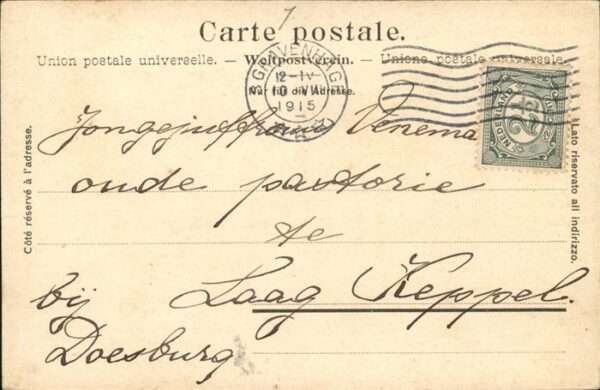 Carte postale.
Union postale universelle. — Weltpostverein. — Unione postale universale.
Nur für die Adresse.
GRAVENHAGE
12-IV
1915
Côté réservé à l'adresse.
Lato riservato all indirizzo.
NEDERLAND
2½
CENT
Jongejuffrouw Venema
oude pastorie
te
Laag Keppel.
bij
Doesburg